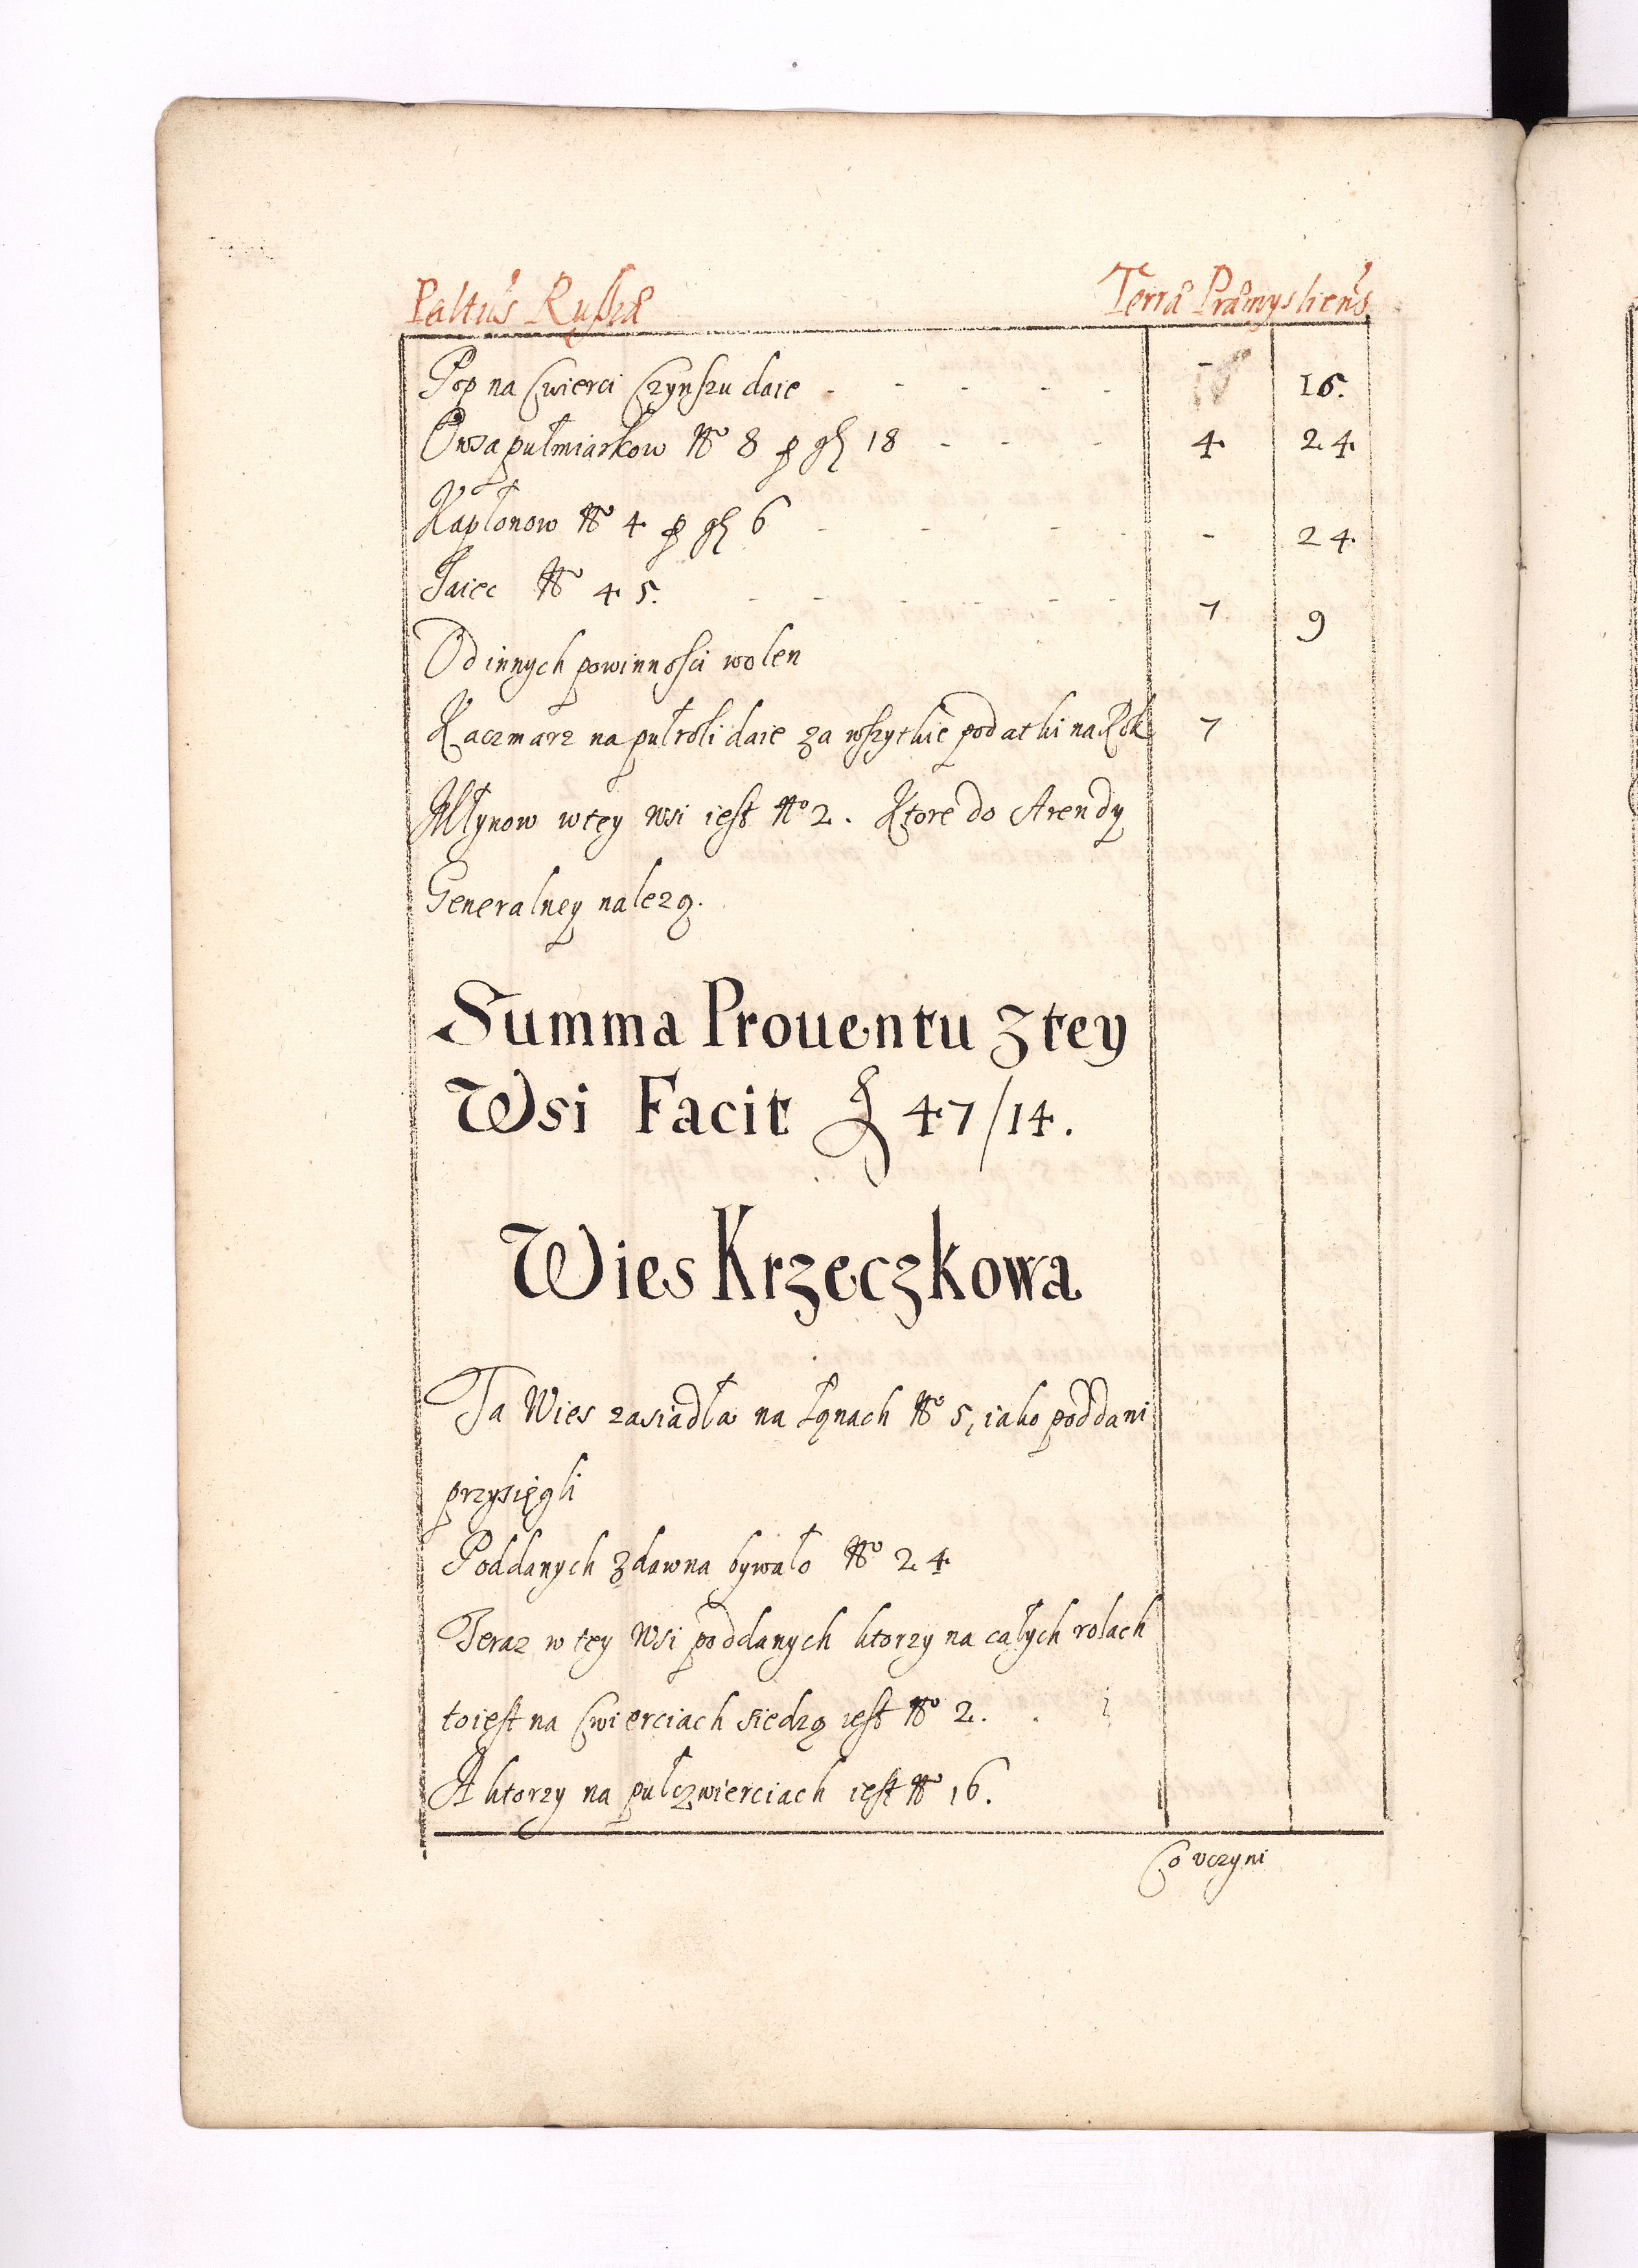 Paltus Russiæ Terræ Præmysliens
Pop na Cwierci Czynszu daie - - - - - - 16.
Owsa pułmiarkow No 8 p gr 18 - - - 4 24
Kapłonow No 4 p gr 6 - - - - - 24
Jaiec No 45. - - - - - - 7 9
Od innych powinnosci wolen
Kaczmarz na pułroli daie za wszytkie podatki na Rok 7
Młynow w tey wsi iest No 2. Ktore do Arendy
Generalney nalezą.
Summa Prouentu z tey
Wsi Facit f 47/14.
Wies Krzeczkowa
Ta Wies zasiadła na Łąnach No 5, iako poddani
przysięgli
Poddanych zdawna bywało No 24
Teraz w tey Wsi poddanych ktorzy na całych rolach
to iest na Cwierciach siedzą iest No 2.
A ktorzy na pułczwierciach iest No 16.
Co vczyni